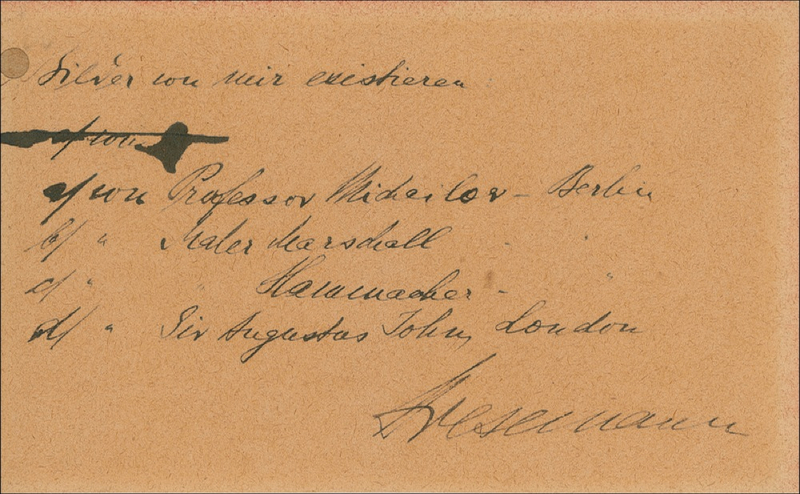 Bilder von mir existieren
a/ von
a/ von Professor Michailow - Berlin
b/ " Maler Marschall " "
c/ " " Hammacher - "
d/ " Sir Augustus John, London
Stresemann